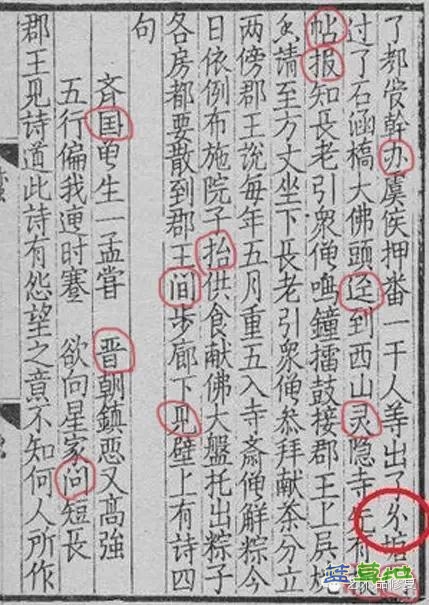 了都管幹办虞侯押番一干人等出了
过了石涵橋大佛頭迳到西山灵隐寺先有
帖报知長老引衆僧鳴鐘擂鼓接郡王上殿燒
香請至方丈坐下長老引衆僧参拜献茶分立
两傍郡王說每年五月重五入寺斎僧解粽今
日依例布施院子抬供食献佛大盤托出粽子
各房都要散到郡王间步廊下见壁上有詩四
句
斉国曾生一孟嘗　晋朝鎮惡又高強
五行偏我遭时蹇　欲向星家问短長
郡王見詩道此詩有怨望之意不知何人所作
蓝草地